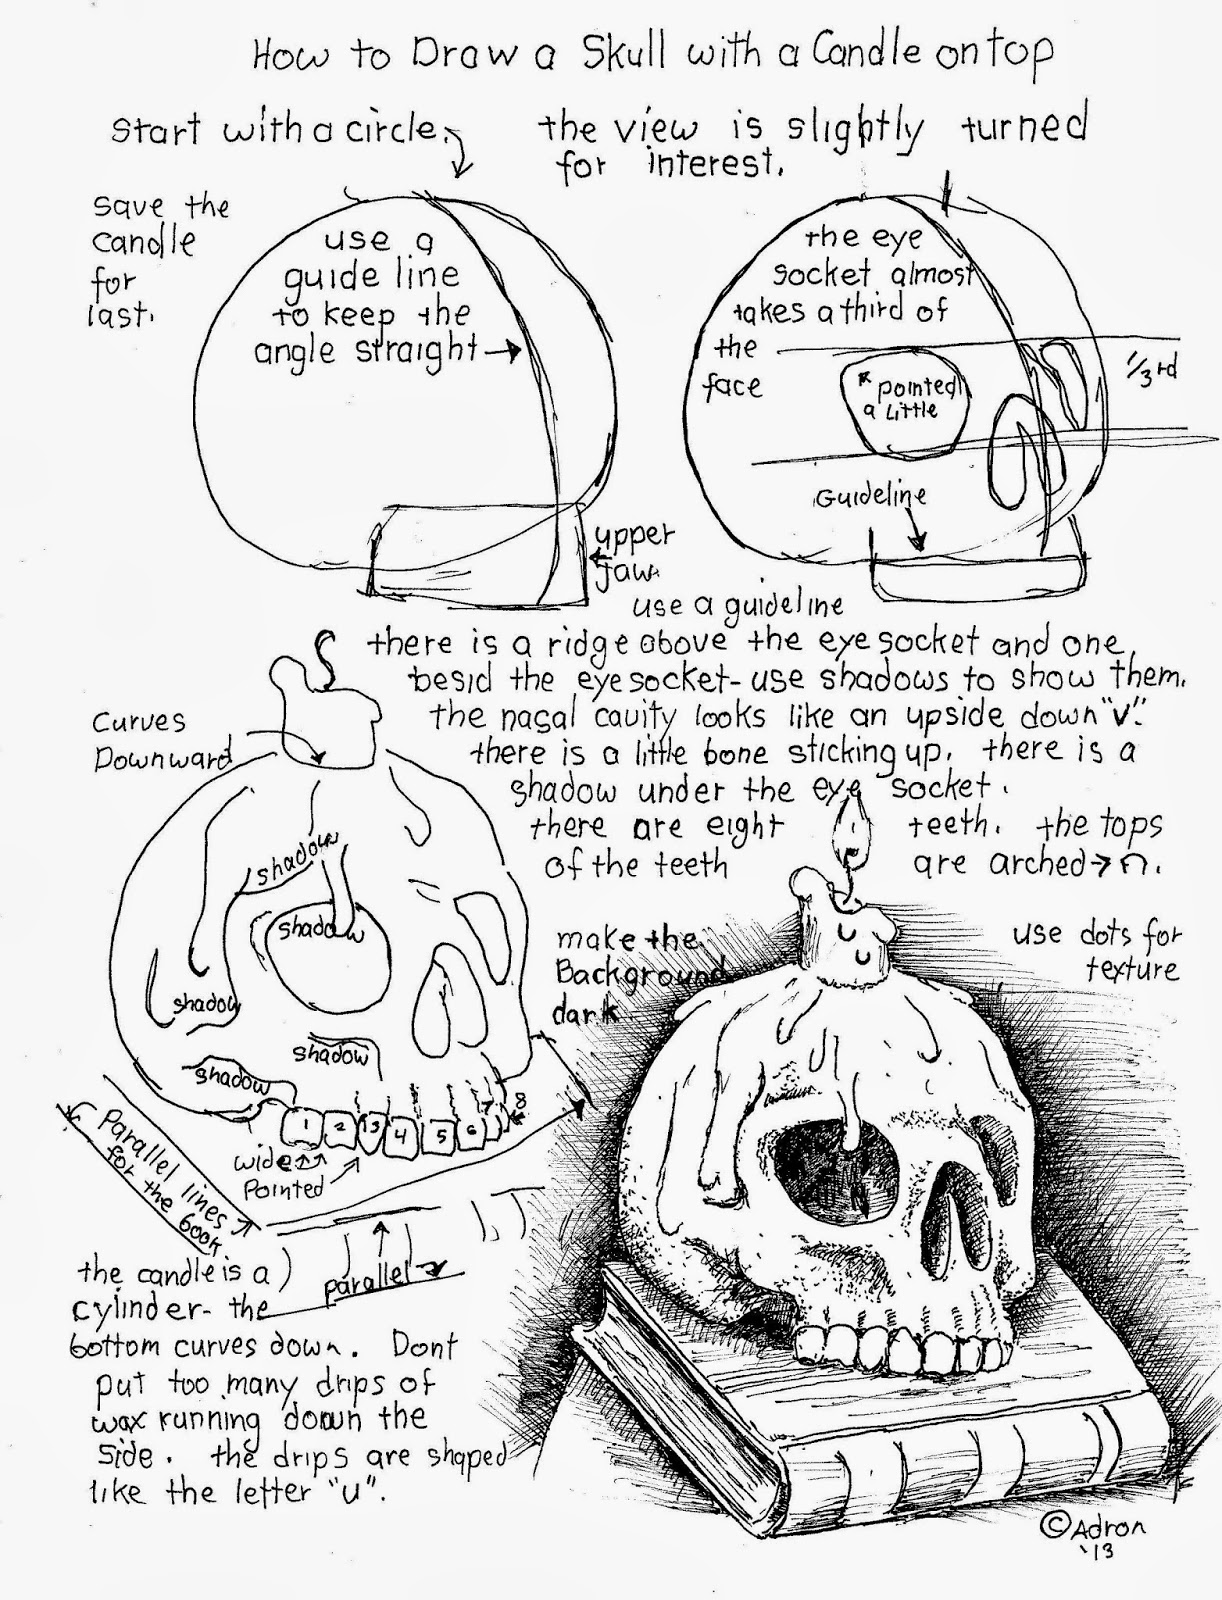 How to Draw a Skull with a Candle on top
Start with a circle.
the view is slightly turned
for interest.
save the
candle
for
last.
use a
guide line
to keep the
angle straight
the eye
socket almost
takes a third of
the
face
pointed
a little
1/3rd
Guideline
upper
jaw
use a guideline
there is a ridge above the eye socket and one
besid the eyesocket- use shadows to show them.
the nasal cavity looks like an upside down "v".
there is a little bone sticking up. there is a
shadow under the eye socket.
there are eight teeth. the tops
of the teeth are arched → ∩.
Curves
Downward
shadow
shadow
shadow
shadow
shadow
1 2 3 4 5 6 7 8
wide
Pointed
Parallel lines
for the book
parallel
make the
Background
dark.
use dots for
texture
the candle is a
cylinder- the
bottom curves down. Dont
put too many drips of
wax running down the
side. the drips are shaped
like the letter "u".
© Adron
'13